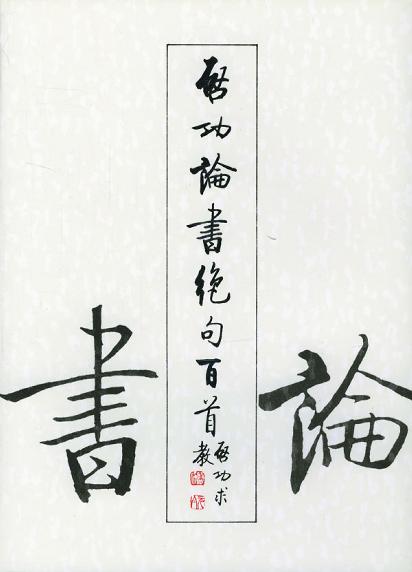 啓功論書絶句百首
啓功求
教
論書